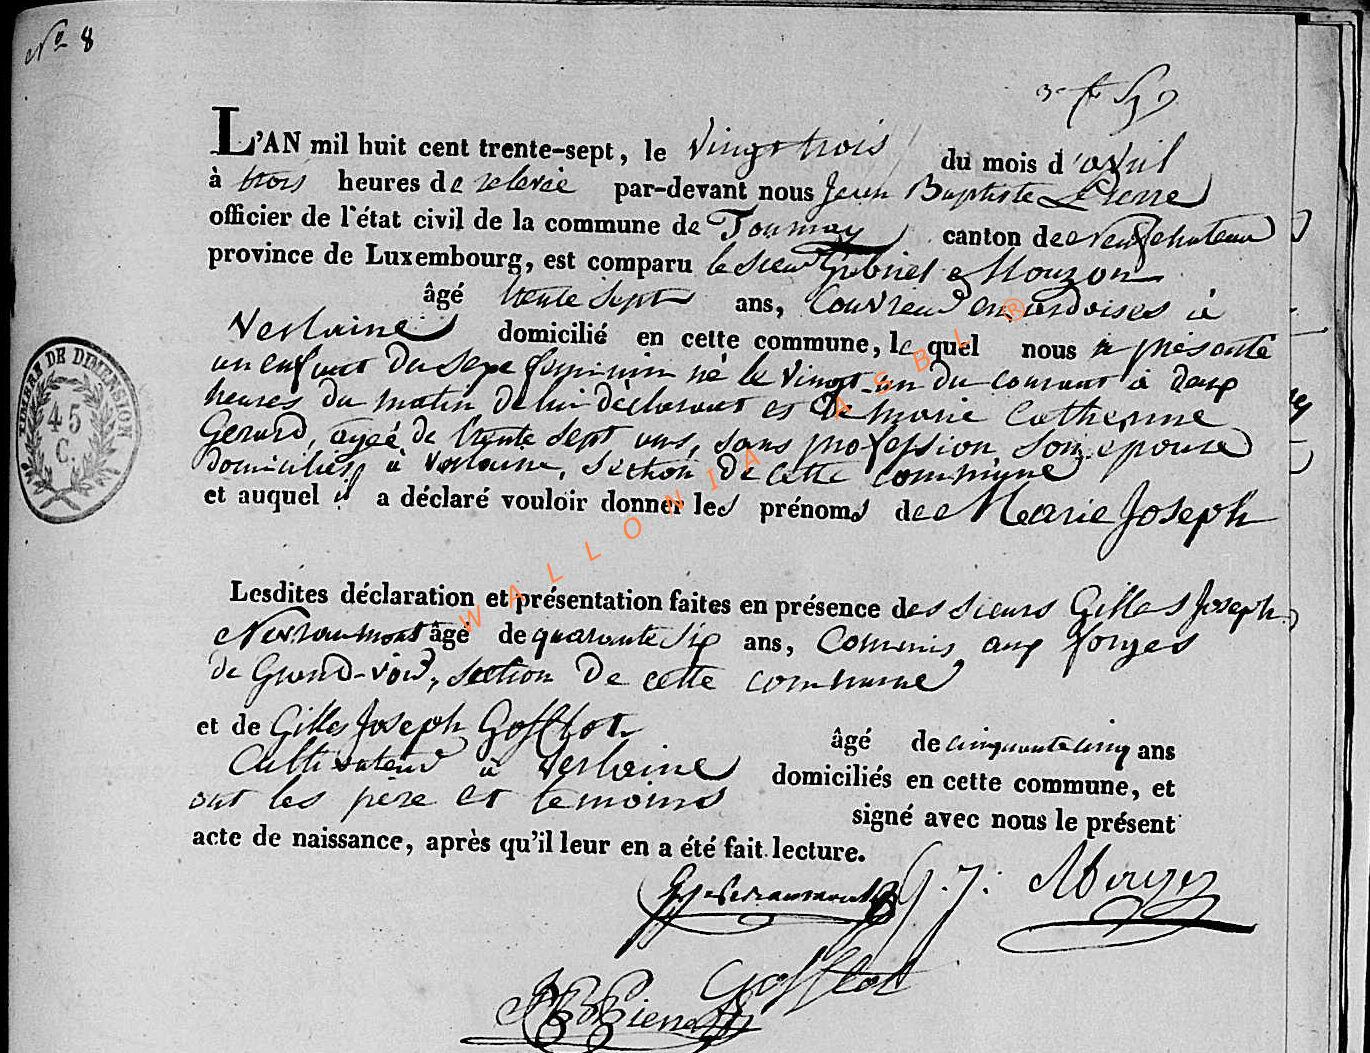 N° 8
L'AN mil huit cent trente-sept, le vingt trois du mois d'avril
à trois heures de relevée par-devant nous Jean Baptiste Pierre
officier de l'état civil de la commune de Tournay canton de Neufchateau
province de Luxembourg, est comparu le sieur Gabriel Mouzon
âgé trente sept ans, Couvreur en ardoises à
Verlaine domicilié en cette commune, le quel nous a présenté
un enfant du sexe féminin né le vingt-un du courant à deux
heures du matin de lui déclarant et de Marie Catherine
Gerard, agée de trente sept ans, sans profession, son epouse
domiciliés à Verlaine, section de cette commune
et auquel il a déclaré vouloir donner les prénoms de Marie Joseph
Lesdites déclaration et présentation faites en présence des sieurs Gilles Joseph
âgé de quarante six ans, Commis aux forges
de Grand-voir, section de cette commune
et de Gilles Joseph Gofflot âgé de cinquante cinq ans
Cultivateur à Verlaine domiciliés en cette commune, et
ont les père et temoins signé avec nous le présent
acte de naissance, après qu'il leur en a été fait lecture.
G. J.
Gofflot
JB Pierre
TIMBRE DE DIMENSION
45
C.
WALLONIA ASBL ®